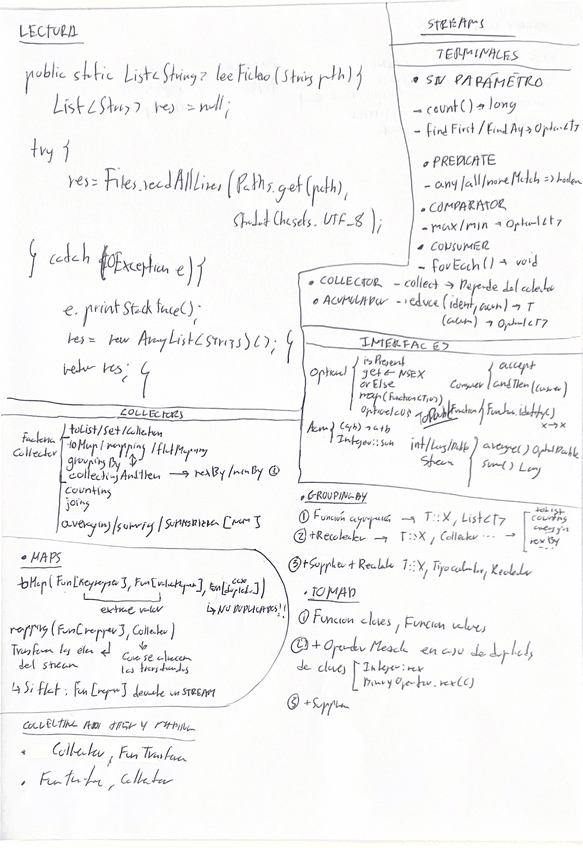 LECTURA
public static List<String> leeFichero (String path) {
List<String> res = null;
try {
res = Files.readAllLines (Paths.get(path),
StandardCharsets.UTF_8);
} catch (IOException e) {
e.printStackTrace();
res = new ArrayList<String>(); }
return res; }
STREAMS
TERMINALES
• SIN PARÁMETRO
- count() → long
- findFirst/findAny → Optional<T>
• PREDICATE
- any/all/noneMatch => boolean
• COMPARATOR
- max/min → Optional<T>
• CONSUMER
- forEach() → void
• COLLECTOR - collect → Depende del collector
• ACUMULADOR - reduce (ident, acum) → T
(acum) → Optional<T>
INTERFACES
Optional
isPresent
get ← NSEX
orElse
map(Function)
Consumer
accept
andThen (consumer)
Function { Function.identity()
x → x
Acum { (a,b) → a+b
Integer::sum
int/Long/Double
Stream
average() OptionalDouble
sum() Long
COLLECTORS
Factoria
Collectors
toList/Set/Collection
toMap/mapping/flatMapping
groupingBy
collectingAndThen → maxBy/minBy
counting
joining
averaging/summing/summarizing [Num]
• GROUPINGBY
① Función agrupación → T::X, List<T>
② + Recolector → T::X, Collector ... →
toList
counting
averaging
maxBy
...
③ + Supplier + Recolector T::X, Tipo::new, Recolector
• TOMAP
① Funcion claves, Funcion valores
② + Operador Mezcla en caso de duplicados
de claves
Integer::max
BinaryOperator.maxBy(C)
③ + Supplier
• MAPS
toMap (Fun[KeyMapper], Fun[valueMapper], Fun[caso duplic.])
extrae valor
↳ NO DUPLICADOS!!
mapping (Fun[mapper], Collector)
Transforma los elem
del stream
Como se almacenan
los transformados
↳ Si flat: Fun [mapper] devuelve un STREAM
COLLECTING AND THEN Y MAPPING
• Collector, Fun Transforma
• Fun Transforma, Collector